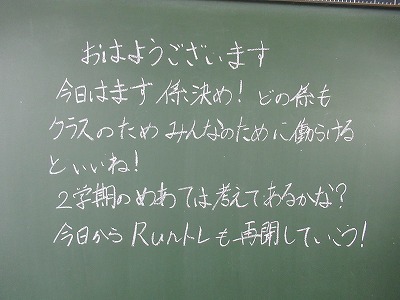 おはようございます
今日はまず係決め！どの係も
クラスのためみんなのために働らける
といいね！
2学期のめあては考えてあるかな？
今日からRunトレも再開していこう！